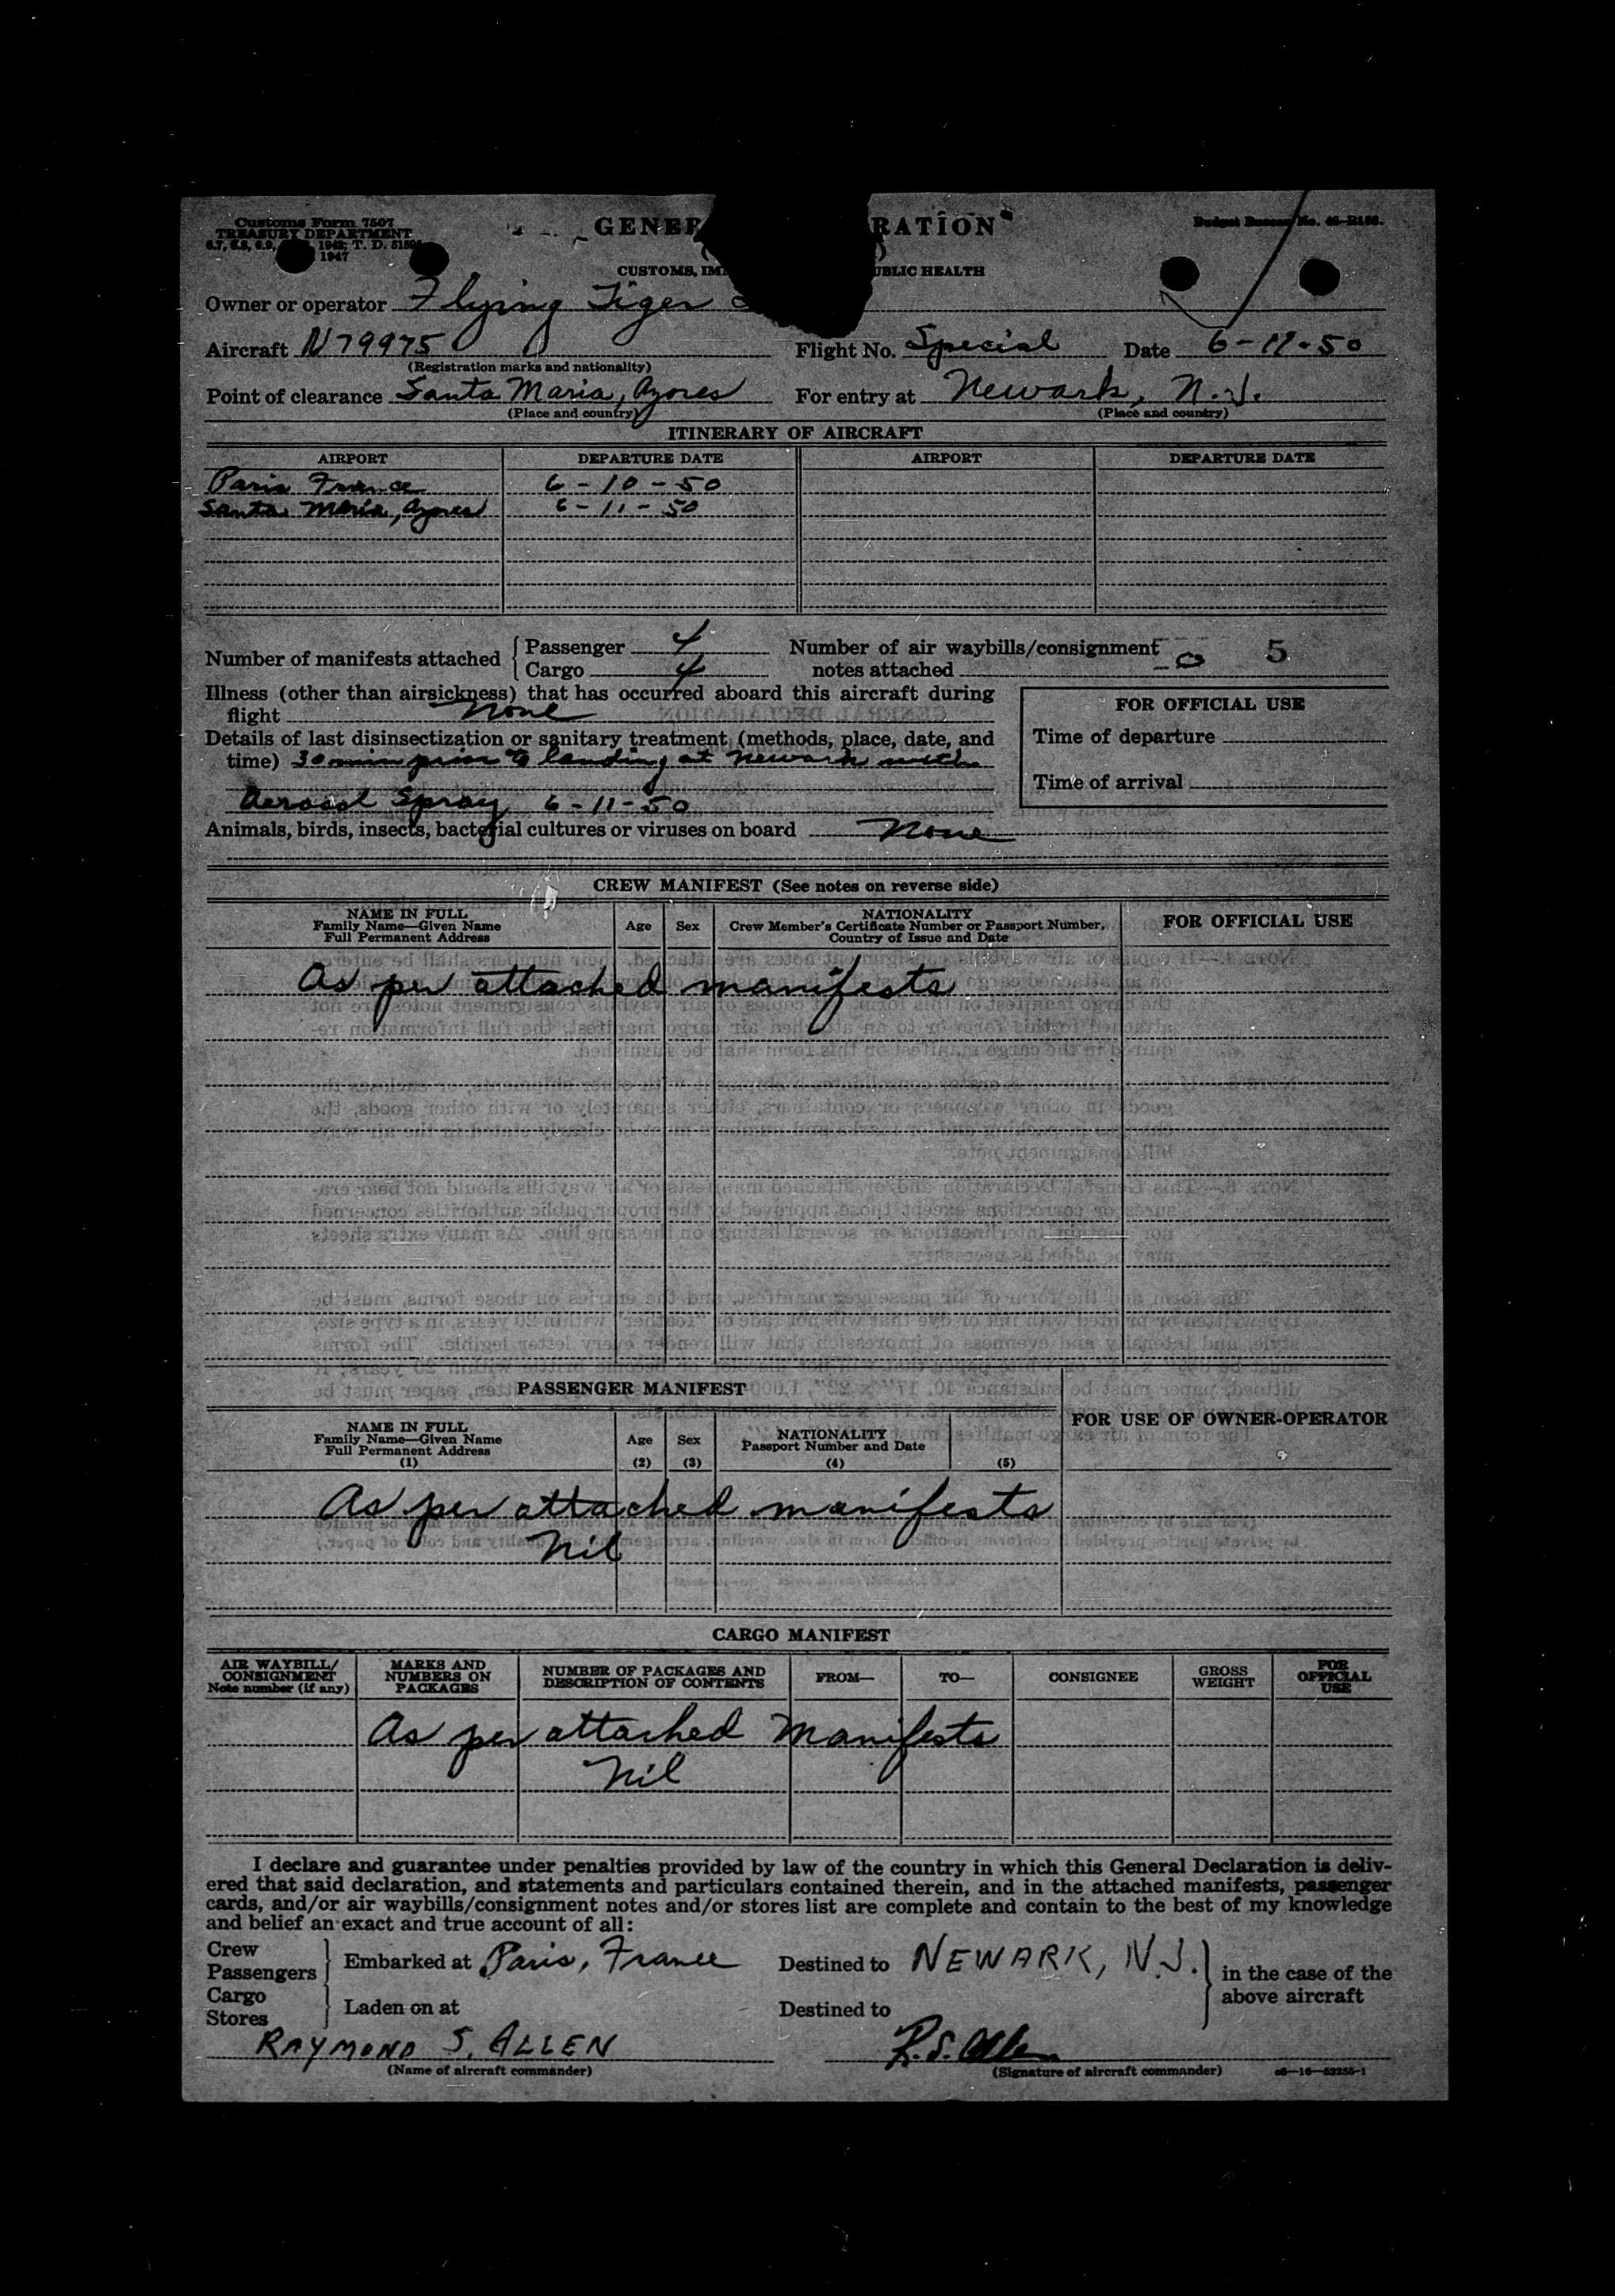 Customs Form 7507
TREASURY DEPARTMENT
1947
GENER RATION
CUSTOMS, IM UBLIC HEALTH
Owner or operator Flying Tiger
Aircraft N79975 Flight No. Special Date 6-11-50
(Registration marks and nationality)
Point of clearance Santa Maria, Azores For entry at Newark, N.J.
(Place and country) (Place and country)
ITINERARY OF AIRCRAFT
AIRPORT DEPARTURE DATE AIRPORT DEPARTURE DATE
Paris France 6-10-50
Santa Maria, Azores 6-11-50
Number of manifests attached Passenger 4 Number of air waybills/consignment
Cargo 4 notes attached 0 5
Illness (other than airsickness) that has occurred aboard this aircraft during
flight None
FOR OFFICIAL USE
Details of last disinsectization or sanitary treatment (methods, place, date, and
time) 30 min prior to landing at Newark with
Time of departure
Time of arrival
Aerosol Spray 6-11-50
Animals, birds, insects, bacterial cultures or viruses on board None
CREW MANIFEST (See notes on reverse side)
NAME IN FULL
Family Name—Given Name
Full Permanent Address
Age Sex
NATIONALITY
Crew Member's Certificate Number or Passport Number,
Country of Issue and Date
FOR OFFICIAL USE
As per attached manifests
PASSENGER MANIFEST
NAME IN FULL
Family Name—Given Name
Full Permanent Address
(1)
Age
(2)
Sex
(3)
NATIONALITY
Passport Number and Date
(4) (5)
FOR USE OF OWNER-OPERATOR
As per attached manifests
Nil
CARGO MANIFEST
AIR WAYBILL/
CONSIGNMENT
Note number (if any)
MARKS AND
NUMBERS ON
PACKAGES
NUMBER OF PACKAGES AND
DESCRIPTION OF CONTENTS
FROM—
TO—
CONSIGNEE
GROSS
WEIGHT
FOR
OFFICIAL
USE
As per attached Manifests
Nil
I declare and guarantee under penalties provided by law of the country in which this General Declaration is deliv-
ered that said declaration, and statements and particulars contained therein, and in the attached manifests, passenger
cards, and/or air waybills/consignment notes and/or stores list are complete and contain to the best of my knowledge
and belief an exact and true account of all:
Crew
Passengers
Embarked at Paris, France Destined to NEWARK, N.J.
in the case of the
above aircraft
Cargo
Stores
Laden on at Destined to
RAYMOND S. ALLEN R.S. Allen
(Name of aircraft commander) (Signature of aircraft commander)